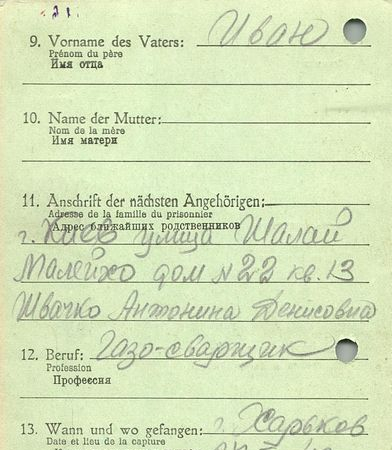 21.
9. Vorname des Vaters: Иван
Prénom du père
Имя отца
10. Name der Mutter:
Nom de la mère
Имя матери
11. Anschrift der nächsten Angehörigen:
Adresse de la famille du prisonnier
Адрес ближайших родственников
г. Киев улица Шалай
Малейхо дом N 22 кв. 13
Швачко Антонина Денисовна
12. Beruf: Газо-сварщик
Profession
Профессия
13. Wann und wo gefangen: г. Харьков
Date et lieu de la capture